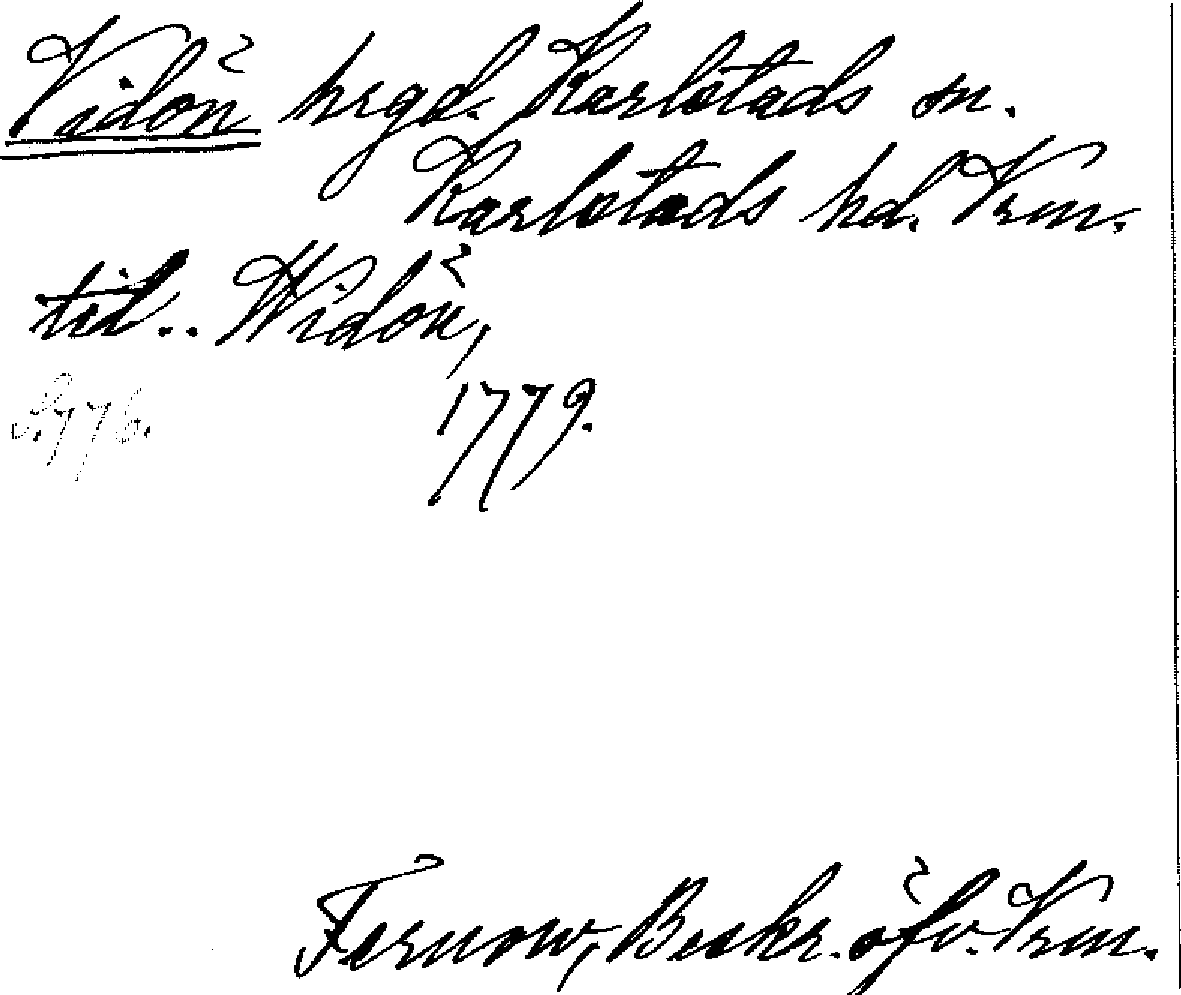 Vidön hrgd. Karlstads sn.
Karlstads hd. Vrm.
till.. Widön,
1779.
S. 776.
Fernow, Beskr. öfv. Vrm.